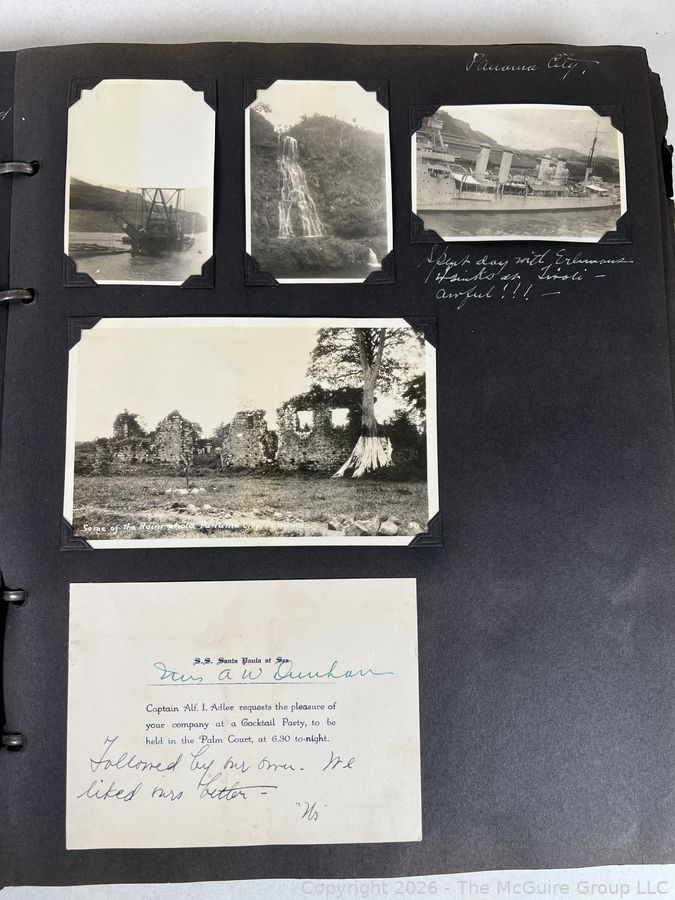 Panama City.
Spent day with Erlmans
drinks at Tivoli -
awful!!! -
Some of the Ruins Old Panama
S.S. Santa Paula at Sea
Mrs A W Dunham
Captain Alf. I. Adler requests the pleasure of
your company at a Cocktail Party, to be
held in the Palm Court, at 6.30 to-night.
Followed by our own. We
liked ours better -
"Us"
Copyright 2026 - The McGuire Group LLC